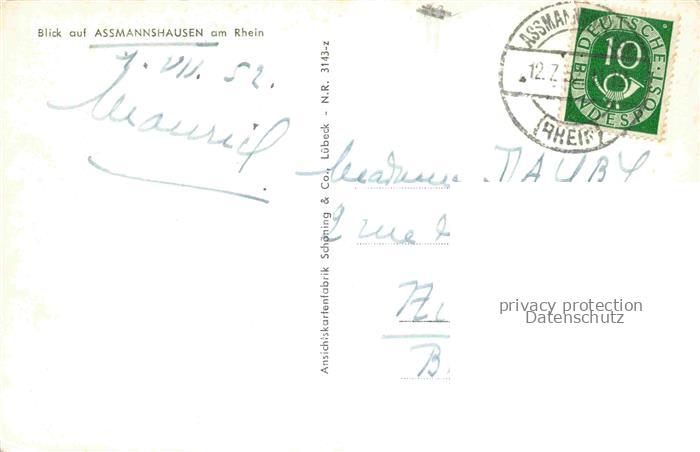 Blick auf ASSMANNSHAUSEN am Rhein
7. VII. 52.
Ansichtskartenfabrik Schöning & Co., Lübeck - N.R. 3143-z
ASSMANN
12.7.5
(RHEIN)
DEUTSCHE
BUNDESPOST
10
Madame MAUBY
2 rue
privacy protection
Datenschutz
B